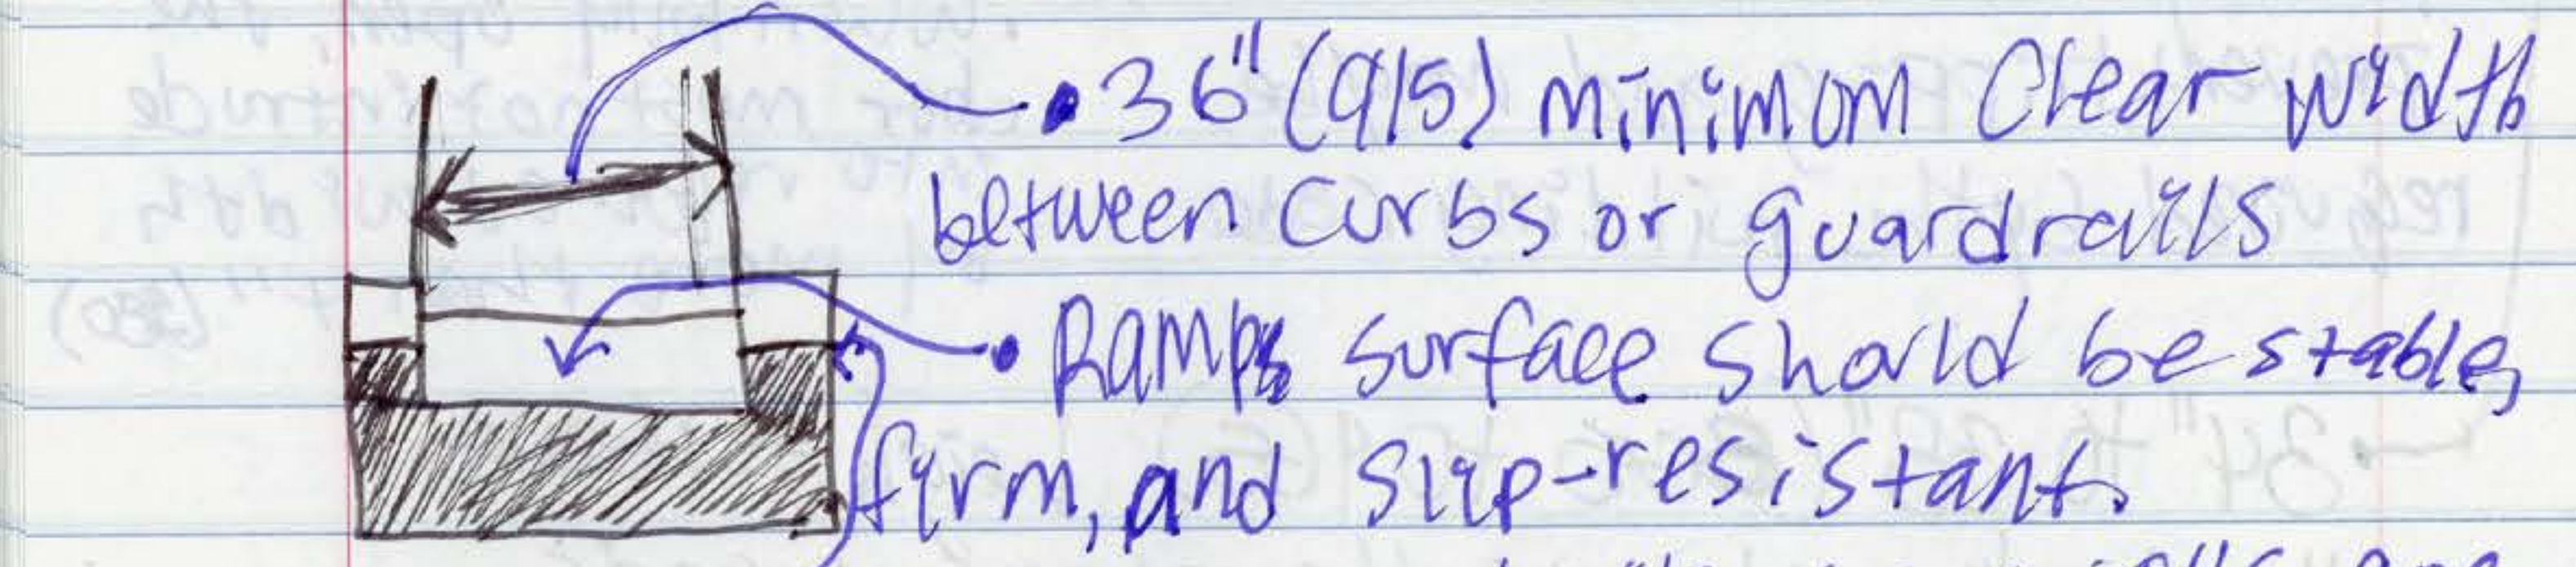 • 36" (915) minimum Clear width
between Curbs or guardrails
• Ramps surface should be stable,
firm, and slip-resistant.